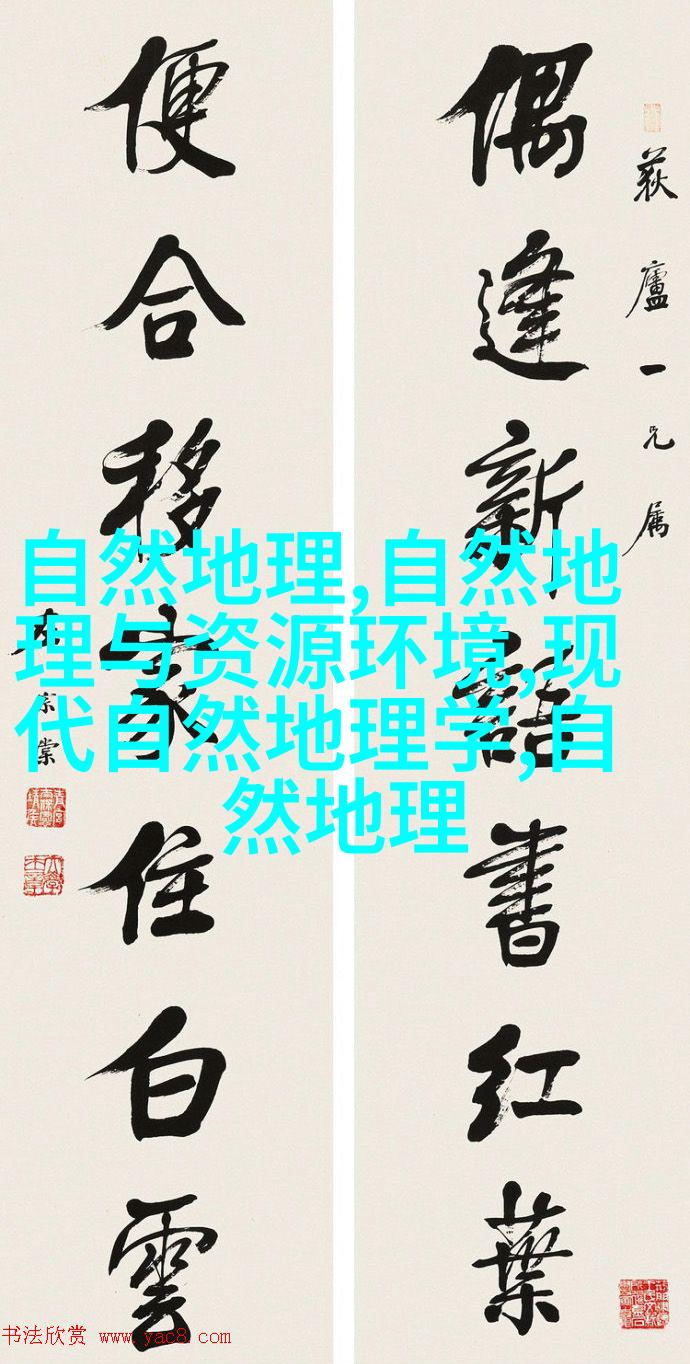 荻廬一兄屬
偶逢新語書紅葉
便合移家住白雲
左宗棠
自然地理,自然地
理与资源环境,现
代自然地理学,自
然地理
书法欣赏 www.yac8.com